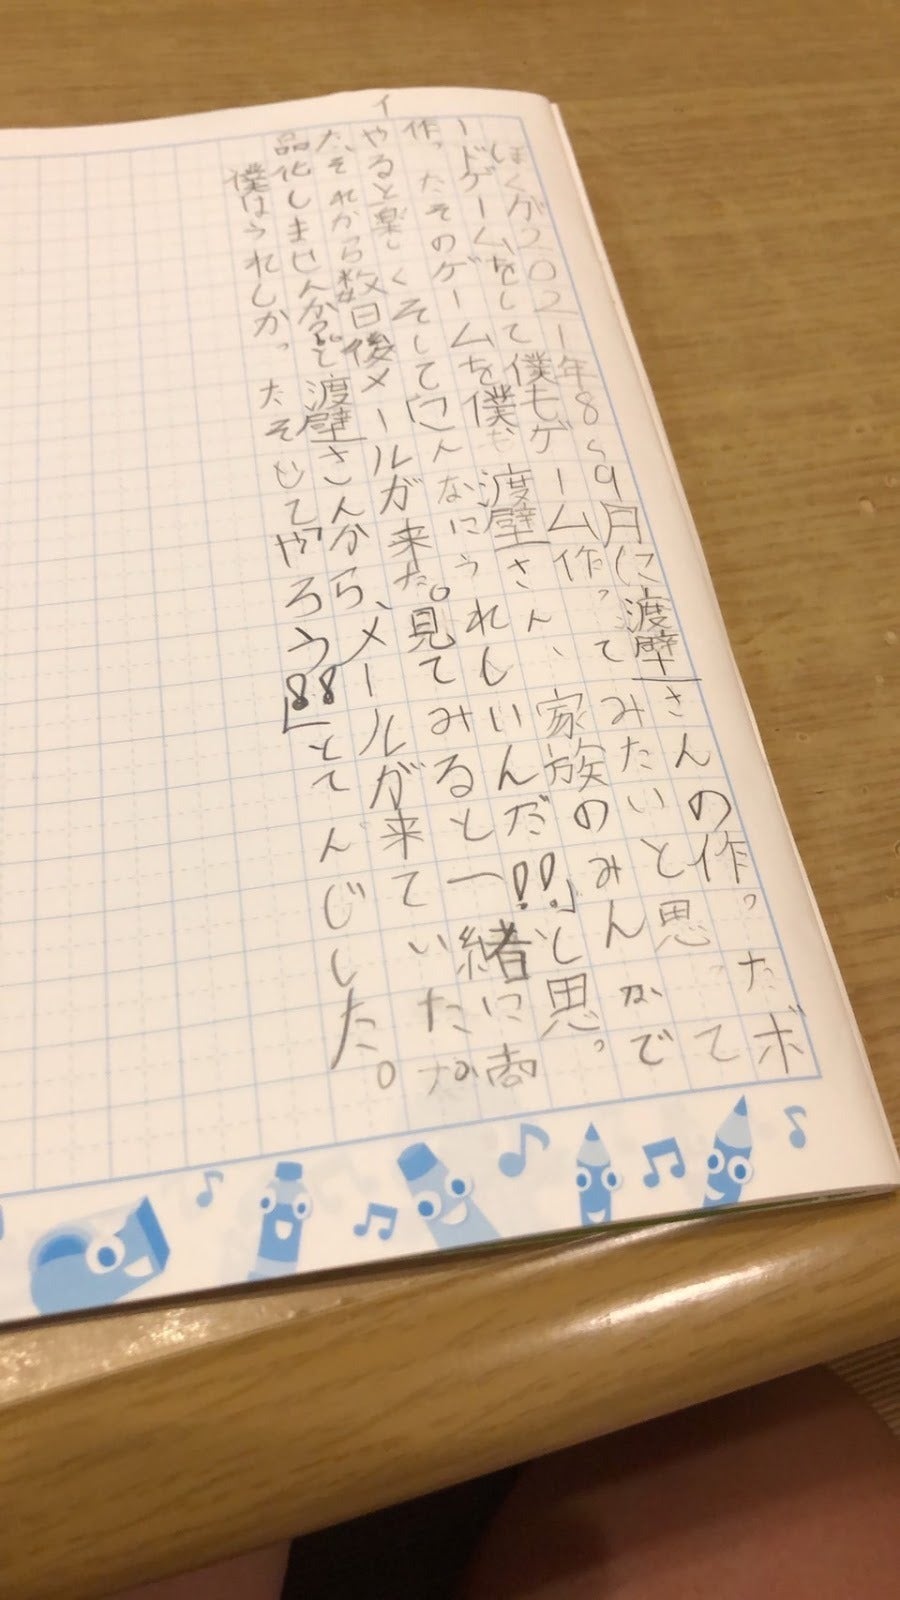 ぼくが2021年8〜9月に渡壁さんの作ったボ
ードゲームをして僕もゲーム作ってみたいと思って
作ったそのゲームを僕も渡壁さん、家族のみんかで
やると楽しくそして「こんなにうれしいんだ!!」と思っ。
た、それから数日後メールが来た。見てみると一緒に商
品化しませんか?と渡壁さんから、メールが来ていたな
僕はうれしかったそしてやろう!!」とてんじした。